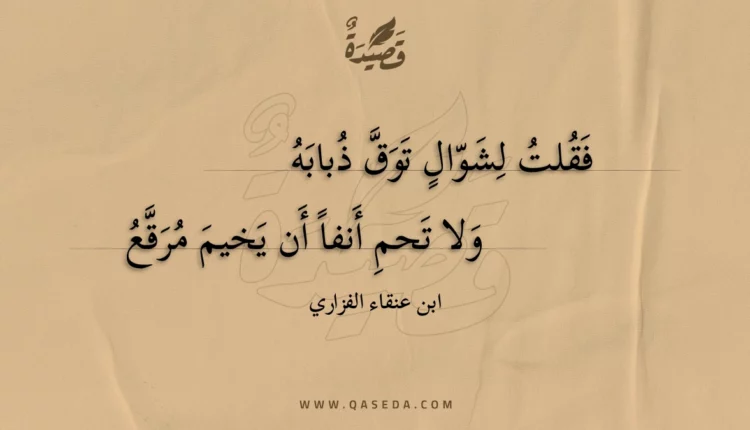 قَصِيدَةٌ
فَقُلتُ لِشَوّالٍ تَوَقَّ ذُبابَهُ
وَلا تَحمِ أَنفاً أَن يَخيمَ مُرَقَّعُ
ابن عنقاء الفزاري
WWW.QASEDA.COM